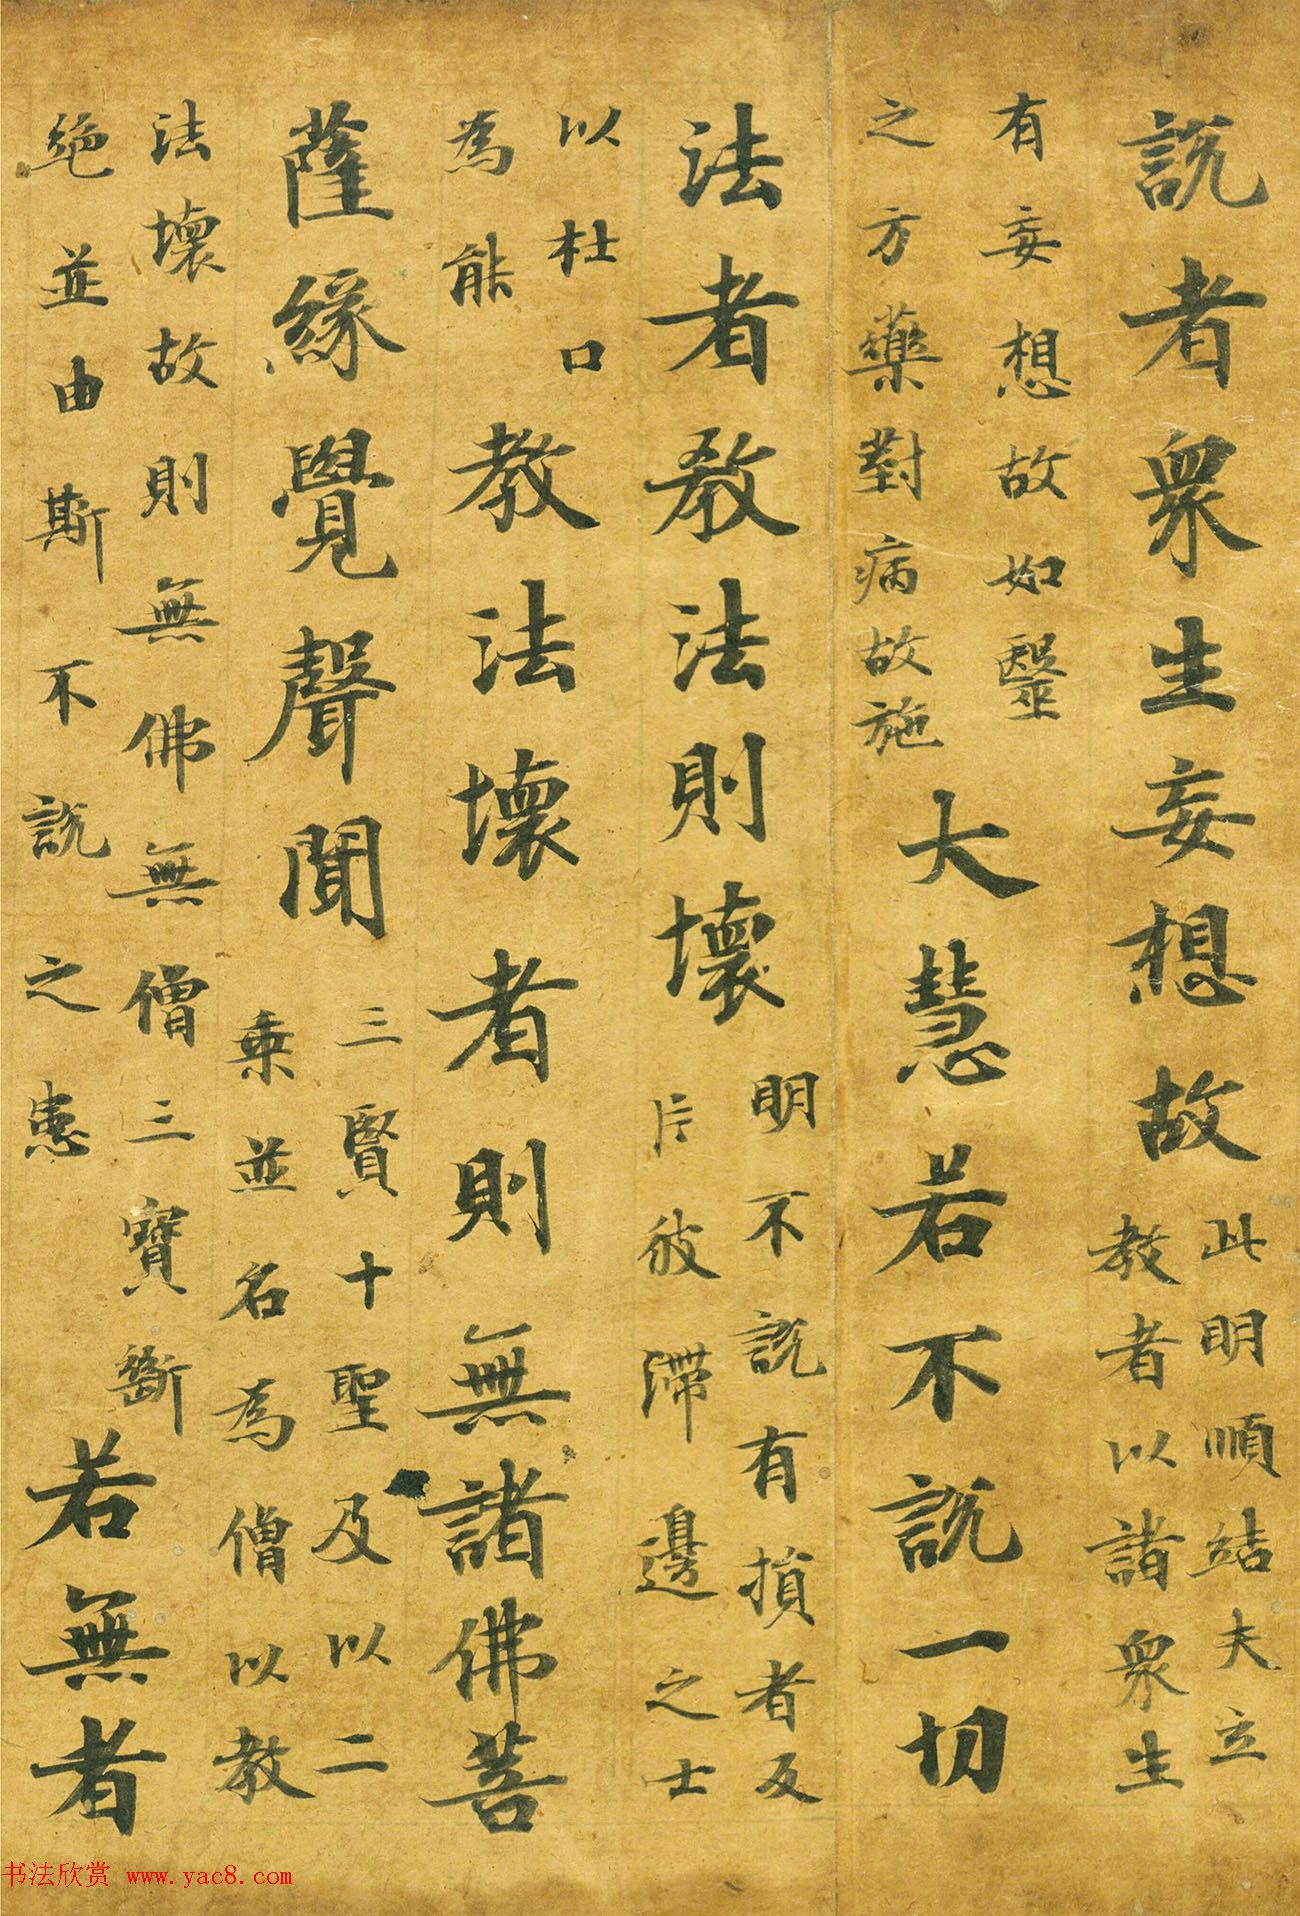 說者眾生妄想故
此明順結夫立
教者以諸眾生
有妄想故如毉
之方藥對病故施
大慧若不說一切
法者教法則壞
明不說有損者反
斥彼滯邊之士
以杜口
為能
教法壞者則無諸佛菩
薩緣覺聲聞
三賢十聖及以二
乘並名為僧以教
法壞故則無佛無僧三寶斷
絕並由斯不說之患
若無者
书法欣赏 www.yac8.com